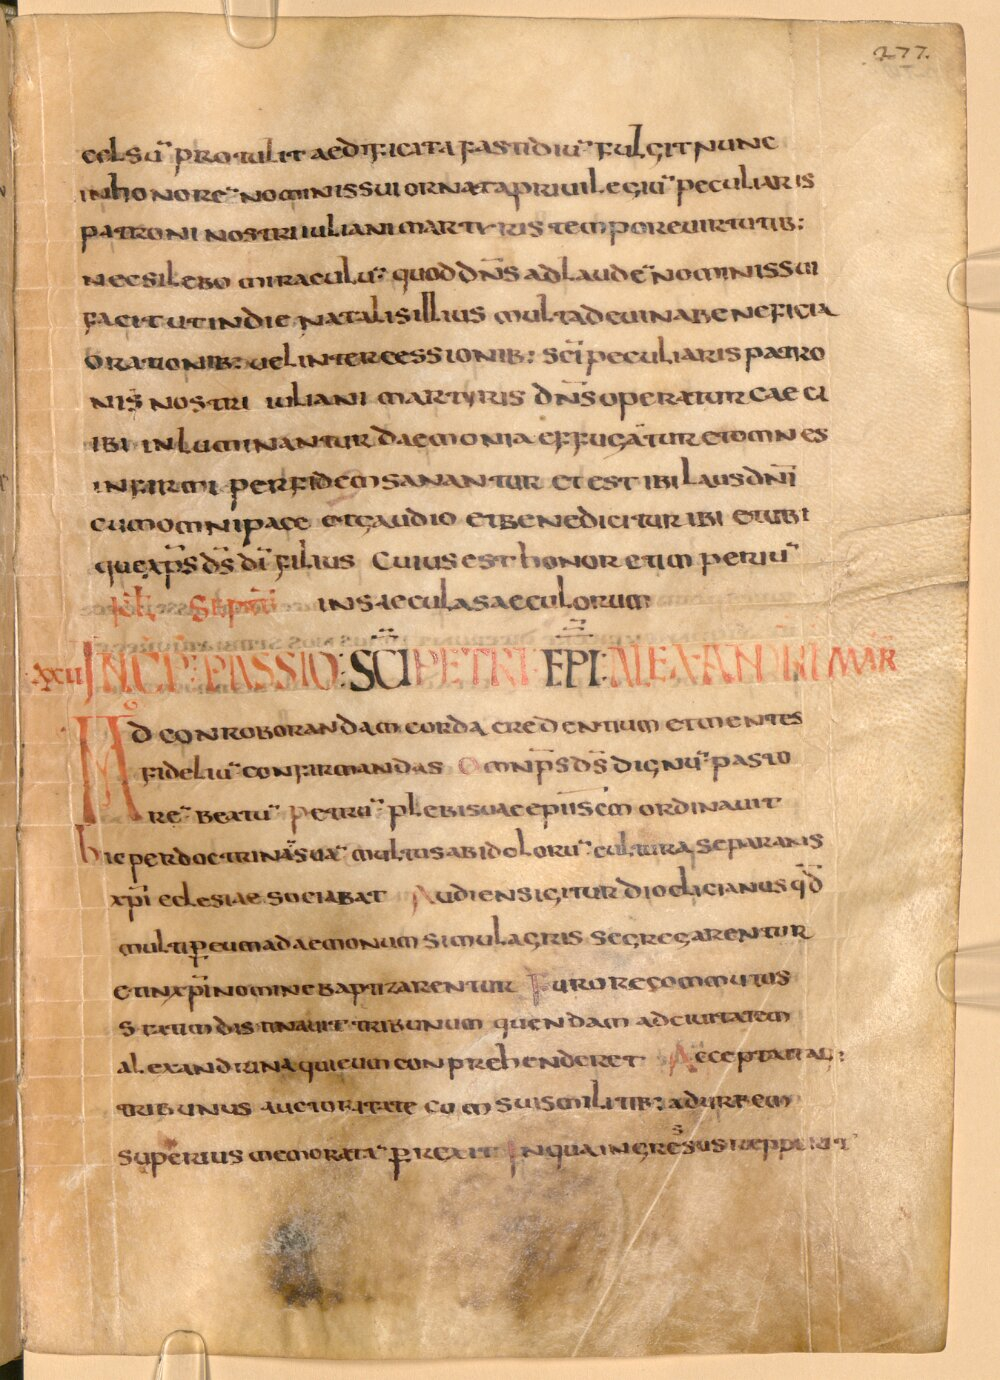 277.
eclsū protulit aedificata fastidiū fulgit nunc
in honorē nominis sui ornata priuilegiū peculiaris
patroni nostri iuliani martyris tempore uirtutib:
nec silebo miraculū quod dn̄s ad laudē nominis sui
facit ut in die natalis illius multa deuina beneficia
orationib: uel intercessionib: sc̄i peculiaris patro
nis nostri iuliani martyris dn̄s operatur caeci
ibi inluminantur daemonia effugātur et omnes
infirmi per fidem sanantur et est ibi laus dn̄i
cum omni pace et gaudio et benedicitur ibi et ubi
que xp̄s d̄s d̄i filius Cuius est honor et imperiū
in saecula saeculorum
xxii INCP: PASSIO: SCI PETRI EPI ALEXANDRI MAR
Ad conroborandam corda credentium et mentes
fideliū confirmandas Omnp̄s d̄s dignū pasto
rē beatū petrū plebi suae epīsem ordinauit
hic per doctrinā suā multus ab idolorū cultura separans
xp̄i eclesiae sociabat Audiens igitur dioclicianus qd̄
multi per eum a daemonum simulagris segregarentur
et in xp̄i nomine baptizarentur Furore commutus
statim distinauit tribunum quendam ad ciuitatem
alexandrina qui eum conprehenderet Accepta itaq:
tribunus auctoritate cum suis militib: ad urbem
superius memoratā perrexit In qua ingressus repperit